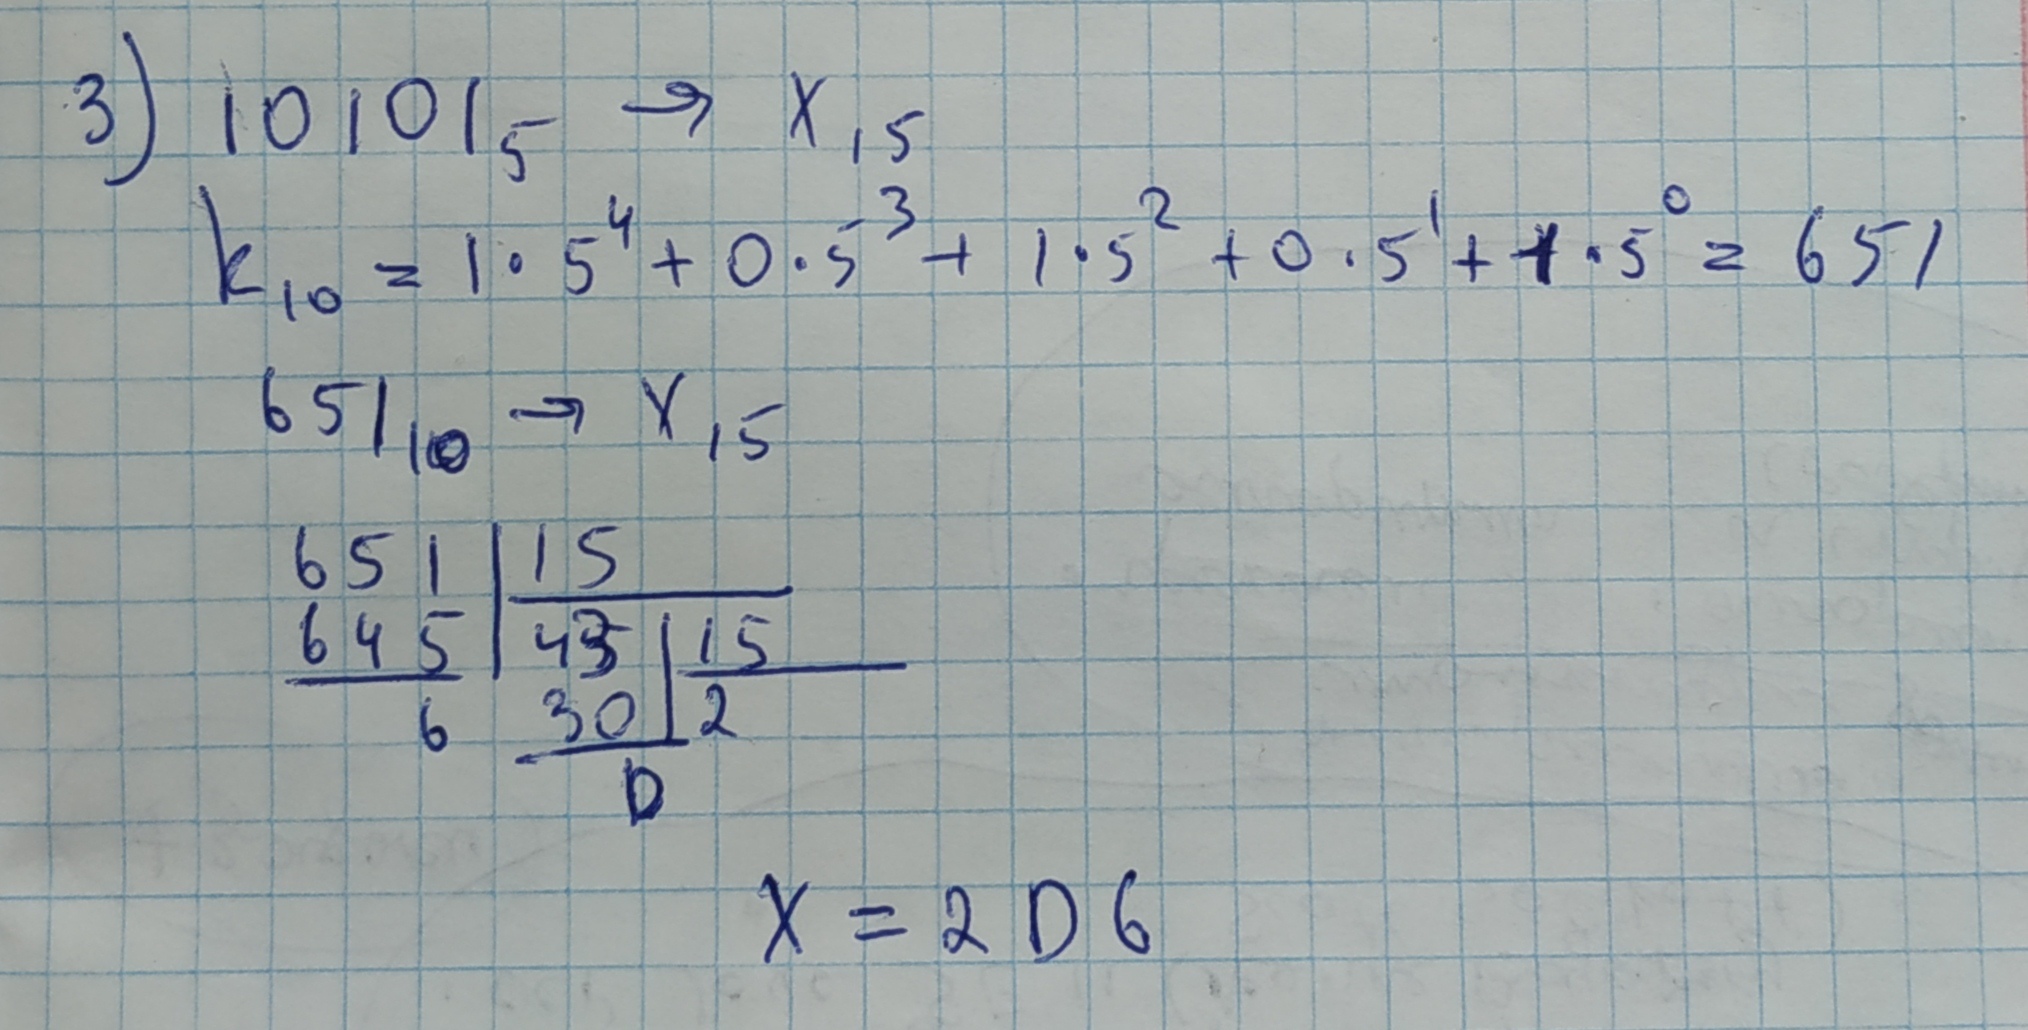 3) 10101₅ → X₁₅
k₁₀ = 1·5⁴ + 0·5³ + 1·5² + 0·5¹ + 1·5⁰ = 651
651₁₀ → X₁₅
651 | 15
645 | 43 | 15
6 30 | 2
D
X = 2D6